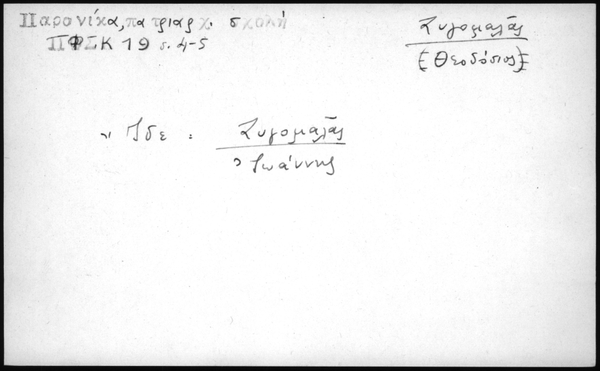 Παρονίκα, πατριαρχ. σχολή
ΠΦΣΚ 19 σ. 4-5
Ζυγομαλᾶς
(Θεοδόσιος)
Ἴδε : Ζυγομαλᾶς
Ἰωάννης